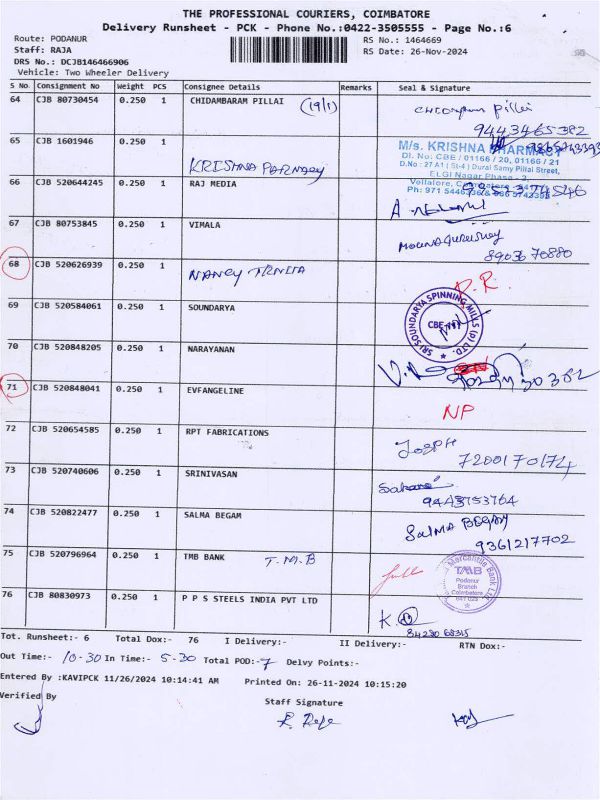 THE PROFESSIONAL COURIERS, COIMBATORE
Delivery Runsheet - PCK - Phone No.:0422-3505555 - Page No.:6
Route: PODANUR
RS No.: 1464669
Staff: RAJA
RS Date: 26-Nov-2024
DRS No.: DCJB146466906
Vehicle: Two Wheeler Delivery
S No Consignment No Weight PCS Consignee Details Remarks Seal & Signature
64 CJB 80730454 0.250 1 CHIDAMBARAM PILLAI (19/1)
pillai
9443465382
65 CJB 1601946 0.250 1
M/s. KRISHNA PHARMACY
Dl. No: CBE / 01166 / 20, 01166 / 21
D.No: 27 A1 (St-4) Durai Samy Pillai Street,
ELGI Nagar Phase - 2,
66 CJB 520644245 0.250 1 RAJ MEDIA
67 CJB 80753845 0.250 1 VIMALA
89036 70880
68 CJB 520626939 0.250 1 NANCY
D.R.
69 CJB 520584061 0.250 1 SOUNDARYA
SRI SOUNDARYA SPINNING MILLS (P) LTD.
CBE
70 CJB 520848205 0.250 1 NARAYANAN
71 CJB 520848041 0.250 1 EVFANGELINE
NP
72 CJB 520654585 0.250 1 RPT FABRICATIONS
Joseph
7200170174
73 CJB 520740606 0.250 1 SRINIVASAN
9443753764
74 CJB 520822477 0.250 1 SALMA BEGAM
SalMA BEGAM
9361217702
75 CJB 520796964 0.250 1 TMB BANK T.M.B
Mercantile Bank
TMB
Podanur
Branch
Coimbatore
76 CJB 80830973 0.250 1 P P S STEELS INDIA PVT LTD
K.
Tot. Runsheet:- 6 Total Dox:- 76 I Delivery:- II Delivery:- RTN Dox:-
Out Time:- 10-30 In Time:- 5-30 Total POD:- 7 Delvy Points:-
Entered By :KAVIPCK 11/26/2024 10:14:41 AM Printed On: 26-11-2024 10:15:20
Verified By
Staff Signature
R. Raja